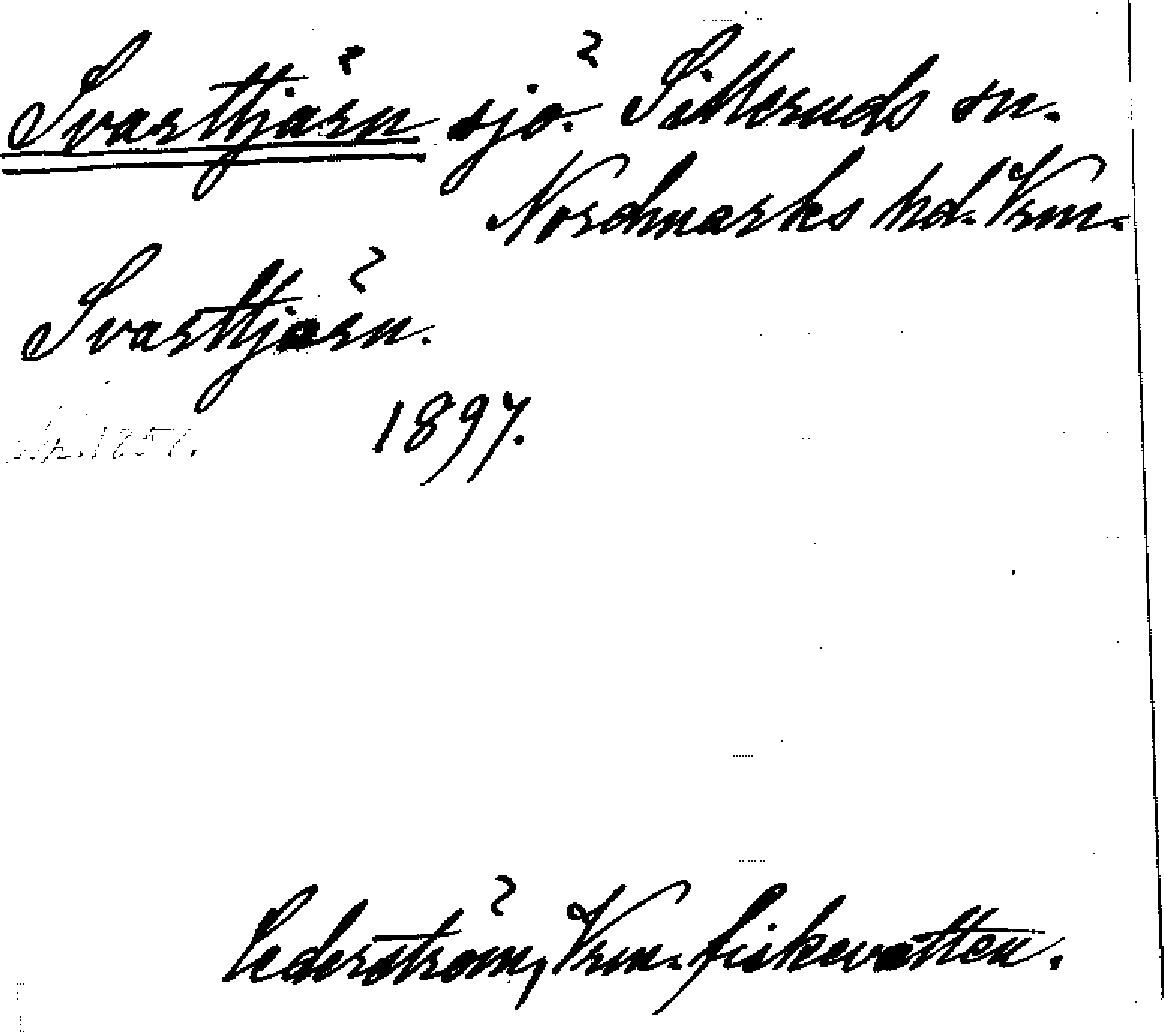 Svarttjärn sjö. Silleruds sn.
Nordmarks hd. Vrm.
Svarttjärn.
1897.
Cederström, Vrm. fiskevatten.